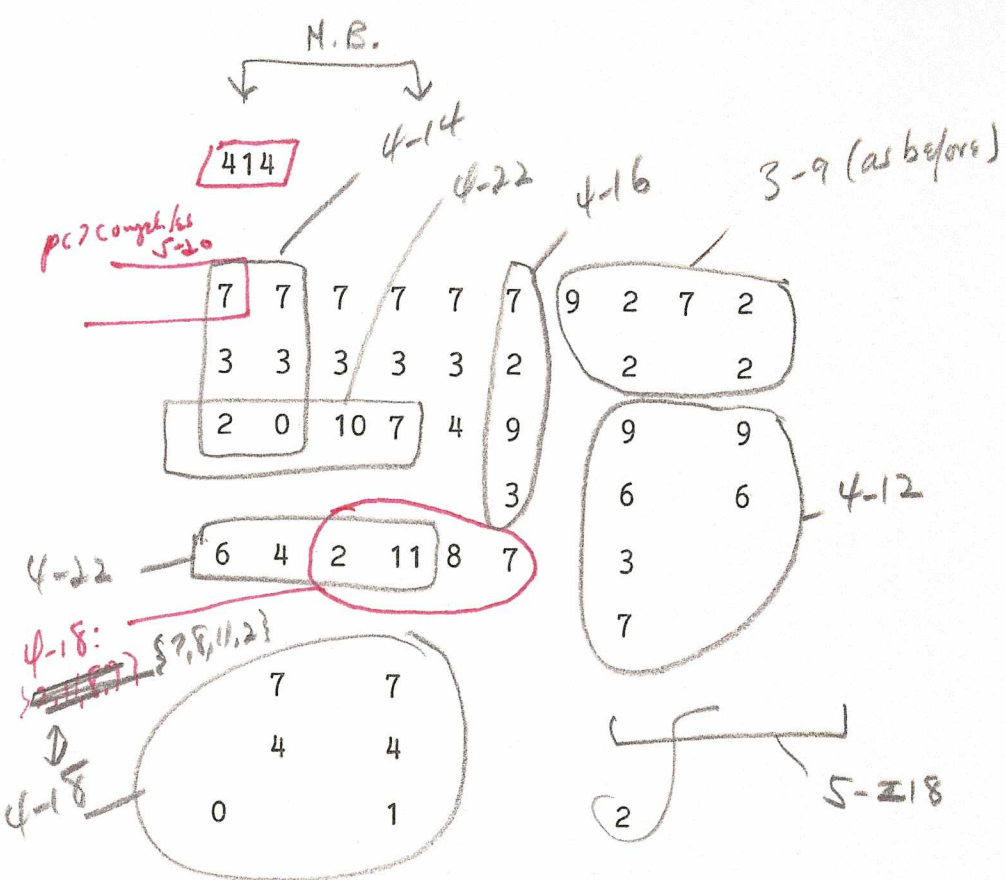 N.B.
414
4-14
4-22
4-16
3-9 (as before)
pc7 completes
5-20
7 7 7 7 7 7 9 2 7 2
3 3 3 3 3 2 2 2
2 0 10 7 4 9 9 9
3 6 6
4-12
4-22
6 4 2 11 8 7 3
7
4-18:
{7,8,11,2}
7 7
4 4
4-18
0 1 2
5-Z18